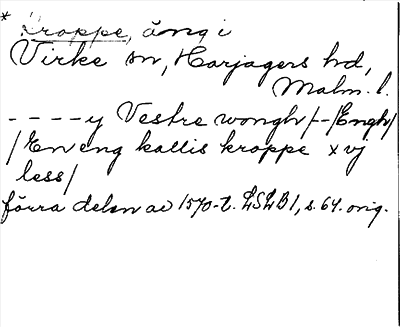 * Kroppe, äng i
Virke sn, Harjagers hd,
Malm. l.
- - - - y Vestre wongh /--/Engh/
/En eng kallis kroppe x vj
less/
förra delen av 1570-t. LSLB 1, s. 64. orig.